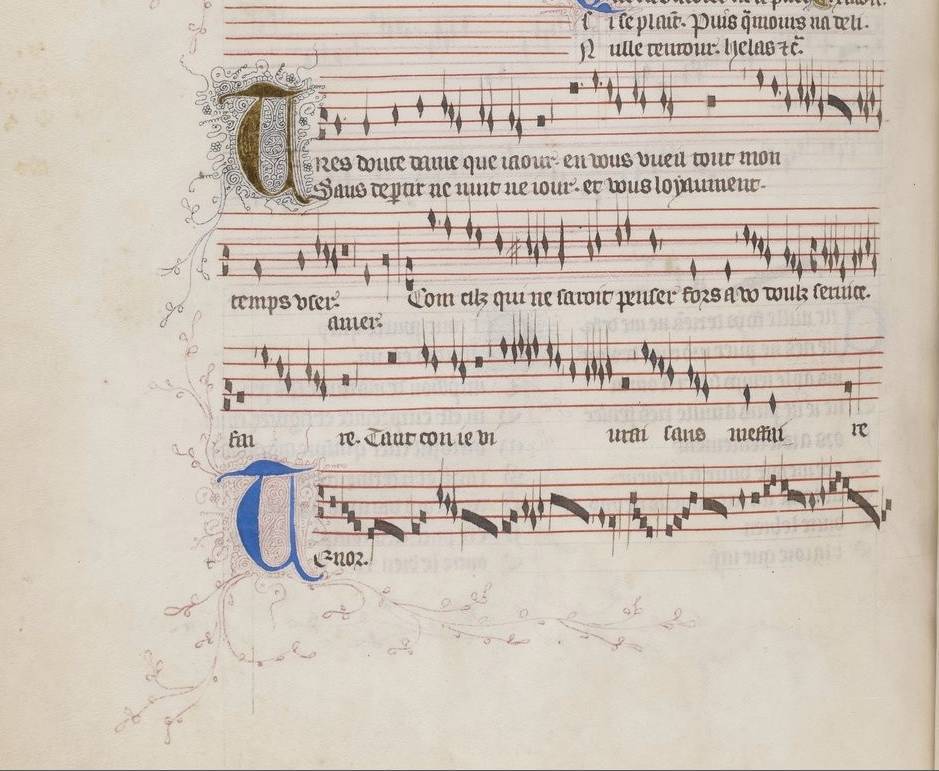 i se plaist. Puis q̃mours na deli.
N ulle tentour. helas ⁊c̃.
Tres douce dame que iaour. en vous vueil tout mon
Sans deptir ne nuit ne iour. et vous loyaument.
temps vser. Com cilz qui ne saroit penser fors a vo doulz seruice.
amer.
fai re. Tant con ie vi urai sans meffai re
Tenor.